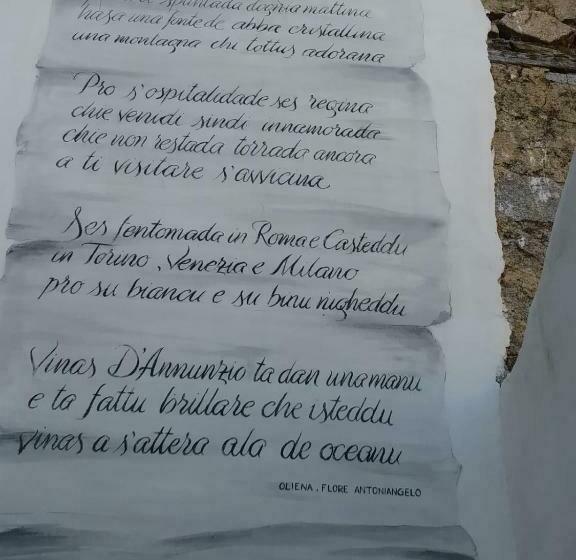 spuntada dognia mattina
hasa una fonte de abba cristallina
una montagna chi tottus adorana
Pro s'ospitalidade ses regina
chie venidi sindi innamorada
chie non restada torrada ancora
a ti visitare s'avvicina
Ses fentomada in Roma e Casteddu
in Torino, Venezia e Milano
pro su biancu e su binu nigheddu
Vinas D'Annunzio ta dan unamanu
e ta fattu brillare che isteddu
vinas a s'attera ala de oceanu
OLIENA. FLORE ANTONIANGELO